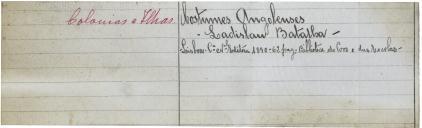 Colonias e Ilhas. Costumes Angolenses
- Ladislau Batalha -
Lisboa - Cª Nªl Editora 1890 - 62 pag. Bibliotheca do Povo e das Escolas -